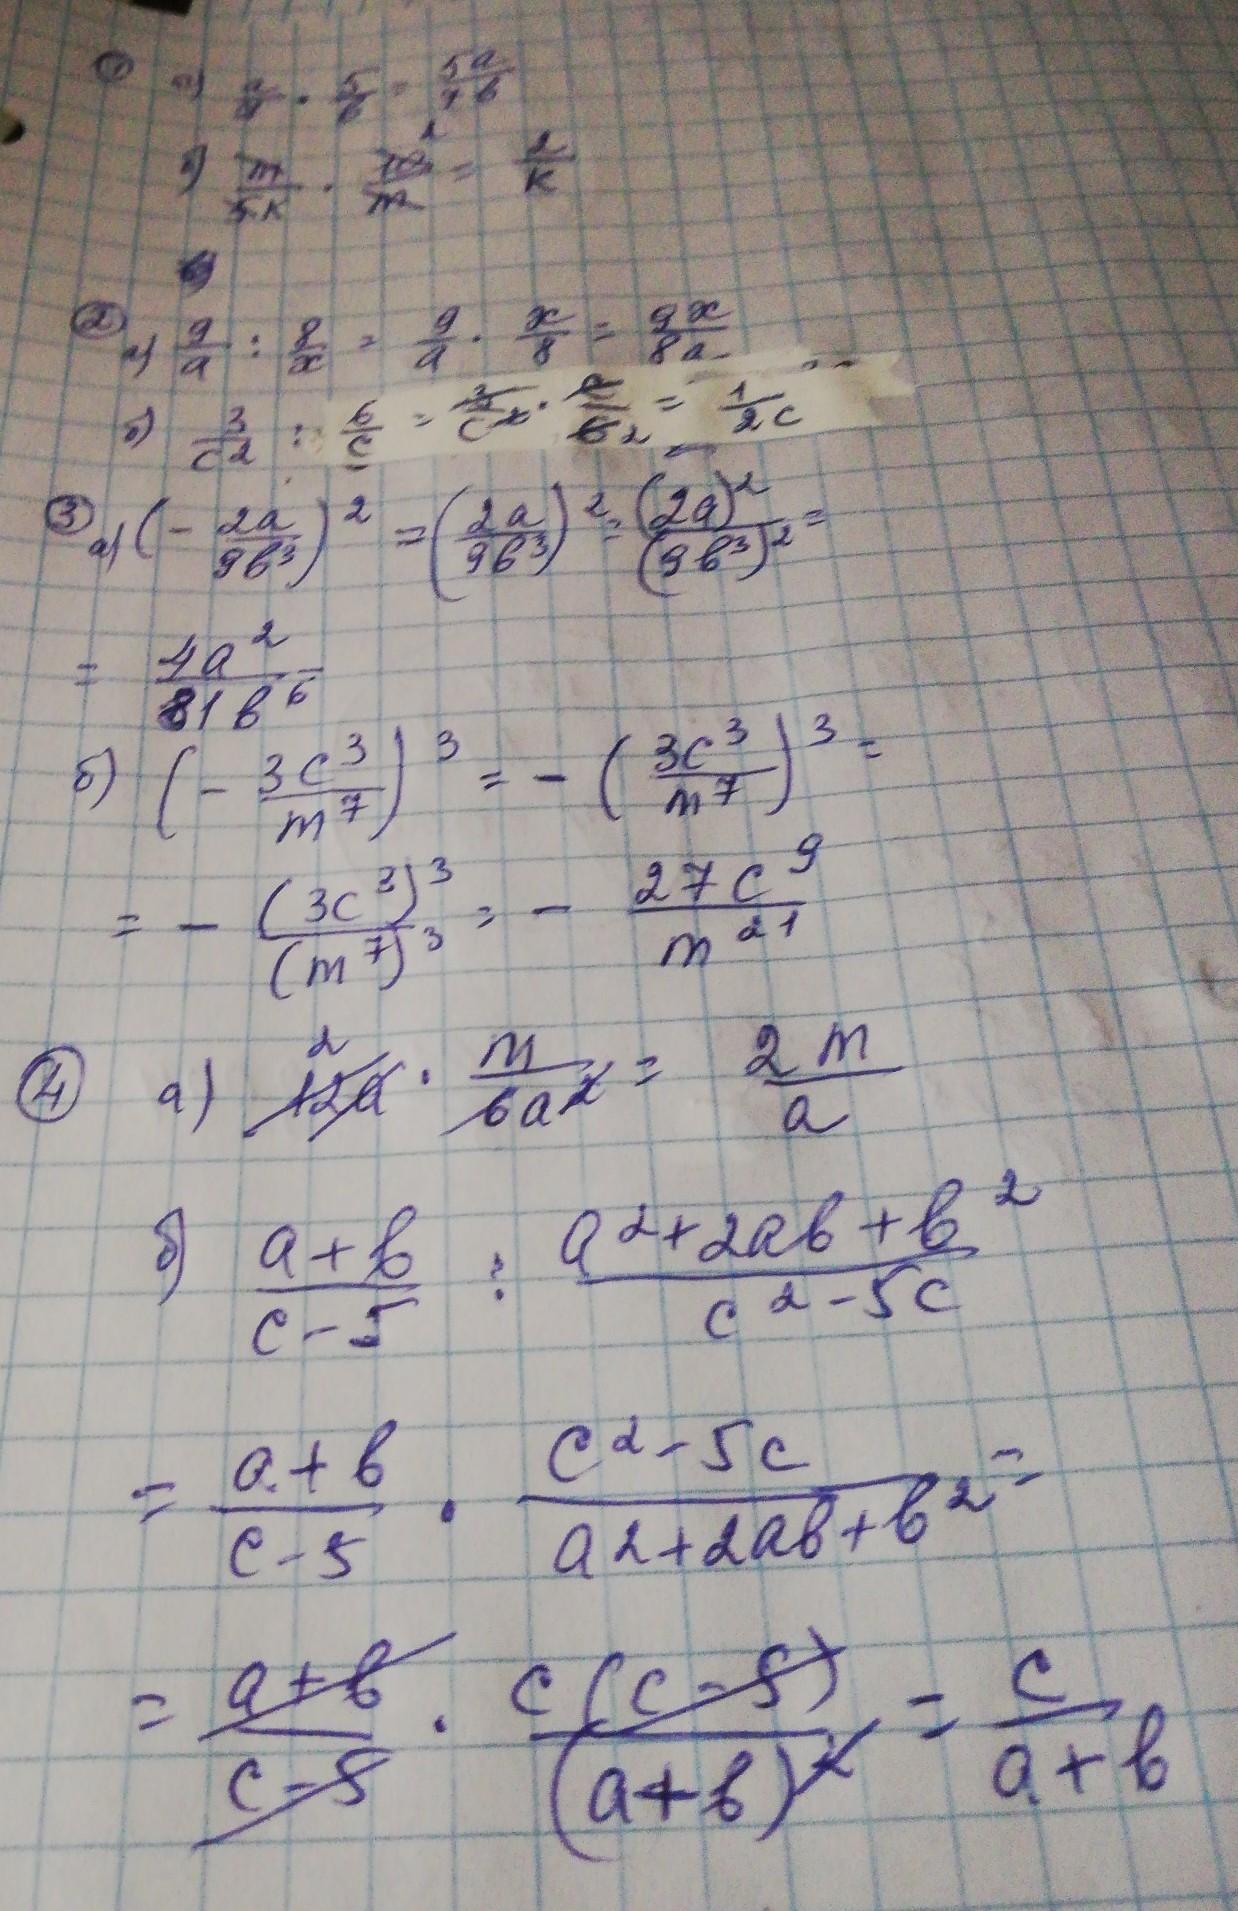 ① а) a/9 · 5/b = 5a/9b
б) m/5k · 10/m = 2/k
② а) 9/a : 8/x = 9/a · x/8 = 9x/8a
б) 3/c² : 6/c = 3/c² · c/6 2 = 1/2c
③ а) (- 2a/9b³)² = (2a/9b³)² = (2a)²/(9b³)² =
= 4a²/81b⁶
б) (- 3c³/m⁷)³ = - (3c³/m⁷)³ =
= - (3c³)³/(m⁷)³ = - 27c⁹/m²¹
④ а) 2 12a · m/6a² = 2m/a
б) a+b/c-5 : a²+2ab+b²/c²-5c
= a+b/c-5 · c²-5c/a²+2ab+b² =
= a+b/c-5 · c(c-5)/(a+b)² = c/a+b